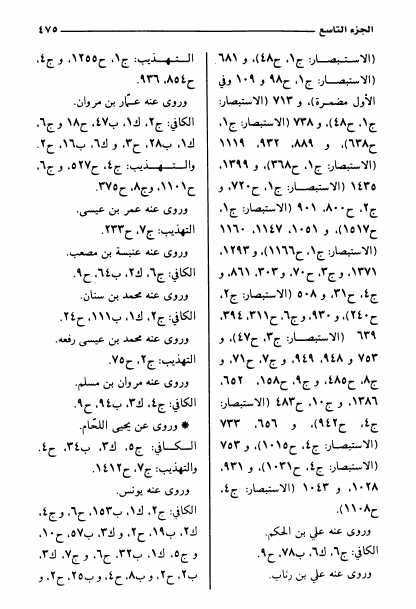 الجزء التاسع ٤٧٥
(الاستبصار: ج١، ح٤٨)، و ٦٨١
(الاستبصار: ج١، ح٩٨ و ١٠٩ وفي
الأول مضمرة)، و ٧١٣ (الاستبصار:
ج١، ح٤٨)، و ٧٣٨ (الاستبصار: ج١،
ح٦٣٨)، و ٨٨٩، ٩٣٢، ١١١٩
(الاستبصار: ج١، ح٣٦٨)، و ١٣٩٩،
١٤٣٥ (الاستبصار: ج١، ح٧٢٠)، و
ج٢، ح٨٠٠، ٩٠١ (الاستبصار: ج١،
ح١٥١٧)، و ١٠٥١، ١١٤٧، ١١٦٠
(الاستبصار: ج١، ح١١٦٦)، و ١٢٩٣،
١٣٧١، و ج٣، ح٧٠، و٣٠٣، ٨٦١، و
ج٤، ح٣١، و ٥٠٨ (الاستبصار: ج٢،
ح٢٤٠)، و ٩٣٠، و ج٦، ح٣١١، ٣٩٤،
٦٣٩ (الاستبصار: ج٣، ح٤٧)، و
٧٥٣ و ٩٤٨، ٩٤٩، و ج٧، ح٧١، و
ج٨، ح٤٨٥، و ج٩، ح١٥٨، ٦٥٢،
١٣٨٦، و ج١٠، ح٤٨٣ (الاستبصار:
ج٤، ح٩٤٢)، و ٦٥٦، ٧٣٣
(الاستبصار: ج٤، ح١٠١٥)، و ٧٥٣
(الاستبصار: ج٤، ح١٠٣١)، و ٩٣١،
١٠٢٨، و ١٠٤٣ (الاستبصار: ج٤،
ح١١٠٨).
وروى عنه علي بن الحكم.
الكافي: ج٦، ك٦، ب٧٨، ح٩.
وروى عنه علي بن رئاب.
التهذيب: ج١، ح١٢٥٥، و ج٤،
ح٨٥٤، ٩٣٦.
وروى عنه عمّار بن مروان.
الكافي: ج٢، ك١، ب٤٧، ح١٨ و ج٦،
ك١، ب٢٨، ح٣، و ك٦، ب١٦، ح٢.
والتهذيب: ج٤، ح٥٢٧، و ج٦،
ح١١٠١، وج٨، ح٣٧٥.
وروى عنه عمر بن عيسى.
التهذيب: ج٧، ح٢٣٣.
وروى عنه عنبسة بن مصعب.
الكافي: ج٦، ك٢، ب٦٤، ح٩.
وروى عنه محمد بن سنان.
الكافي: ج٢، ك١، ب١١١، ح٢٤.
وروى عنه محمد بن عيسى رفعه.
التهذيب: ج٢، ح٧٥.
وروى عنه مروان بن مسلم.
الكافي: ج٤، ك٣، ب٩٤، ح٩.
* وروى عن يحيى اللّحّام.
الكافي: ج٥، ك٣، ب٣٤، ح٤.
والتهذيب: ج٧، ح١٤١٢.
وروى عنه يونس.
الكافي: ج٢، ك١، ب١٥٣، ح٦، و ج٤،
ك٢، ب١٩، ح٢، و ك٣، ب٥٧، ح١٠،
و ج٥، ك١، ب٣٢، ح٦، و ج٧، ك٣،
ب٢، ح٢، و ب٨، ح٤، و ب٢٥، ح٢، و